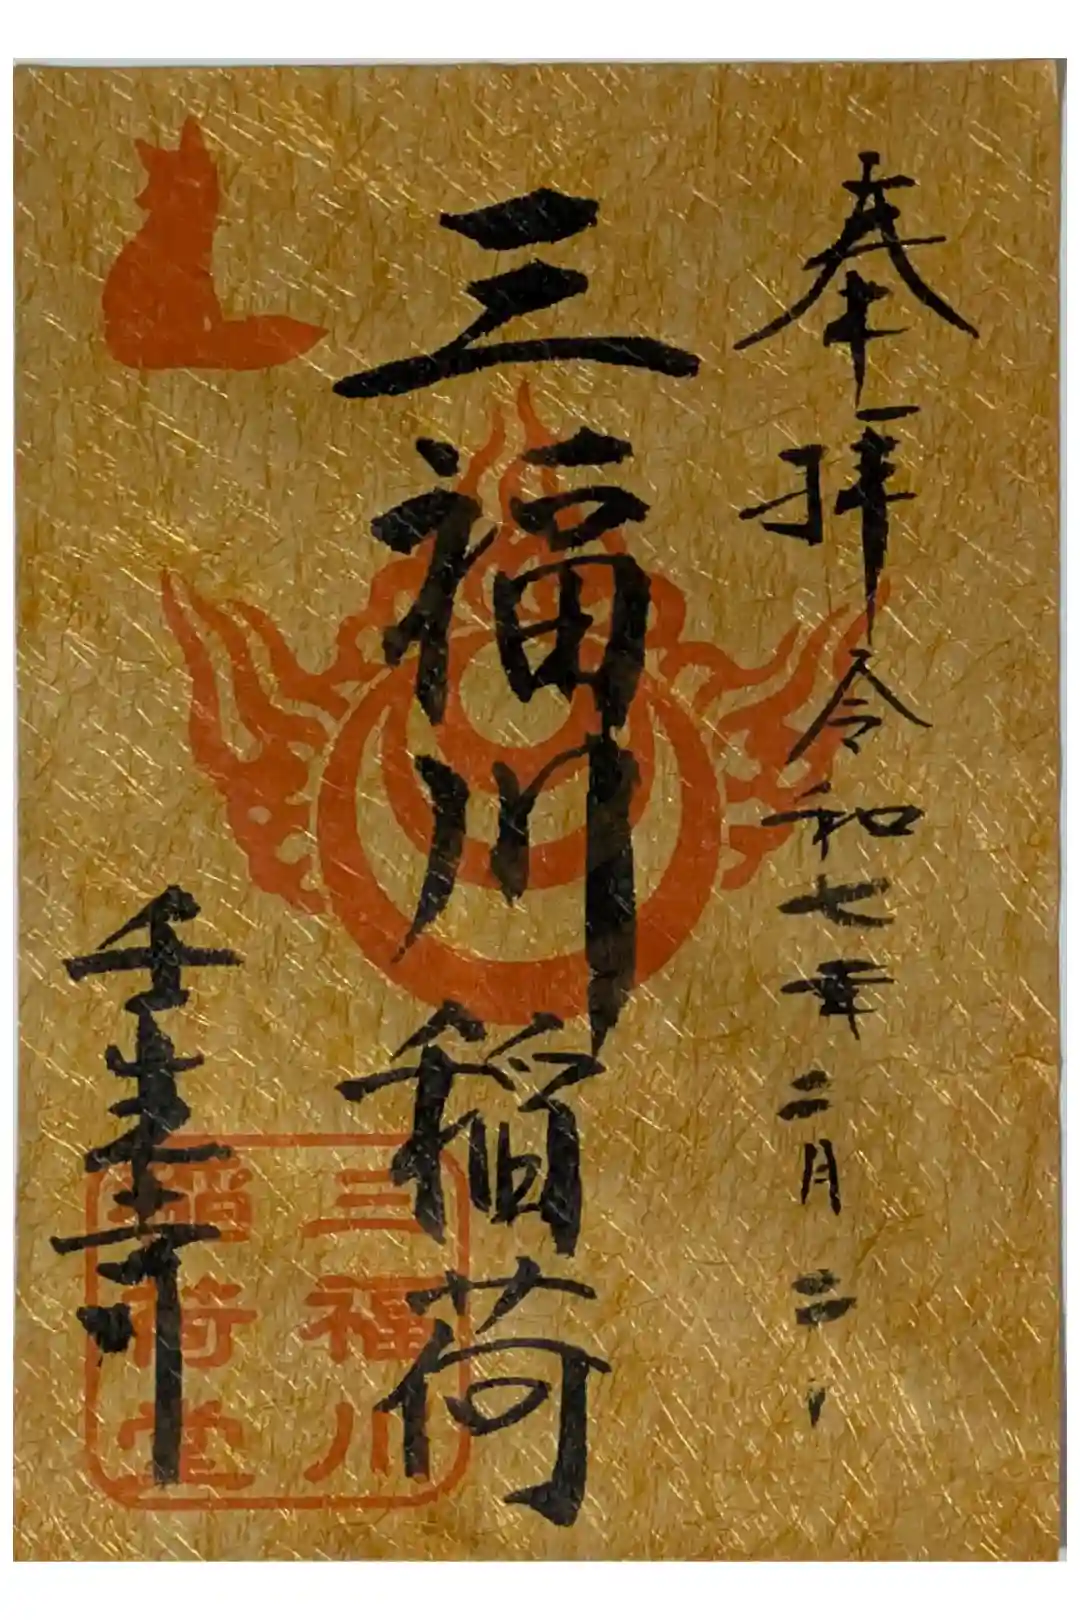 奉拝 令和七年二月二
三福川稲荷
壬生寺
三福川
稲荷堂